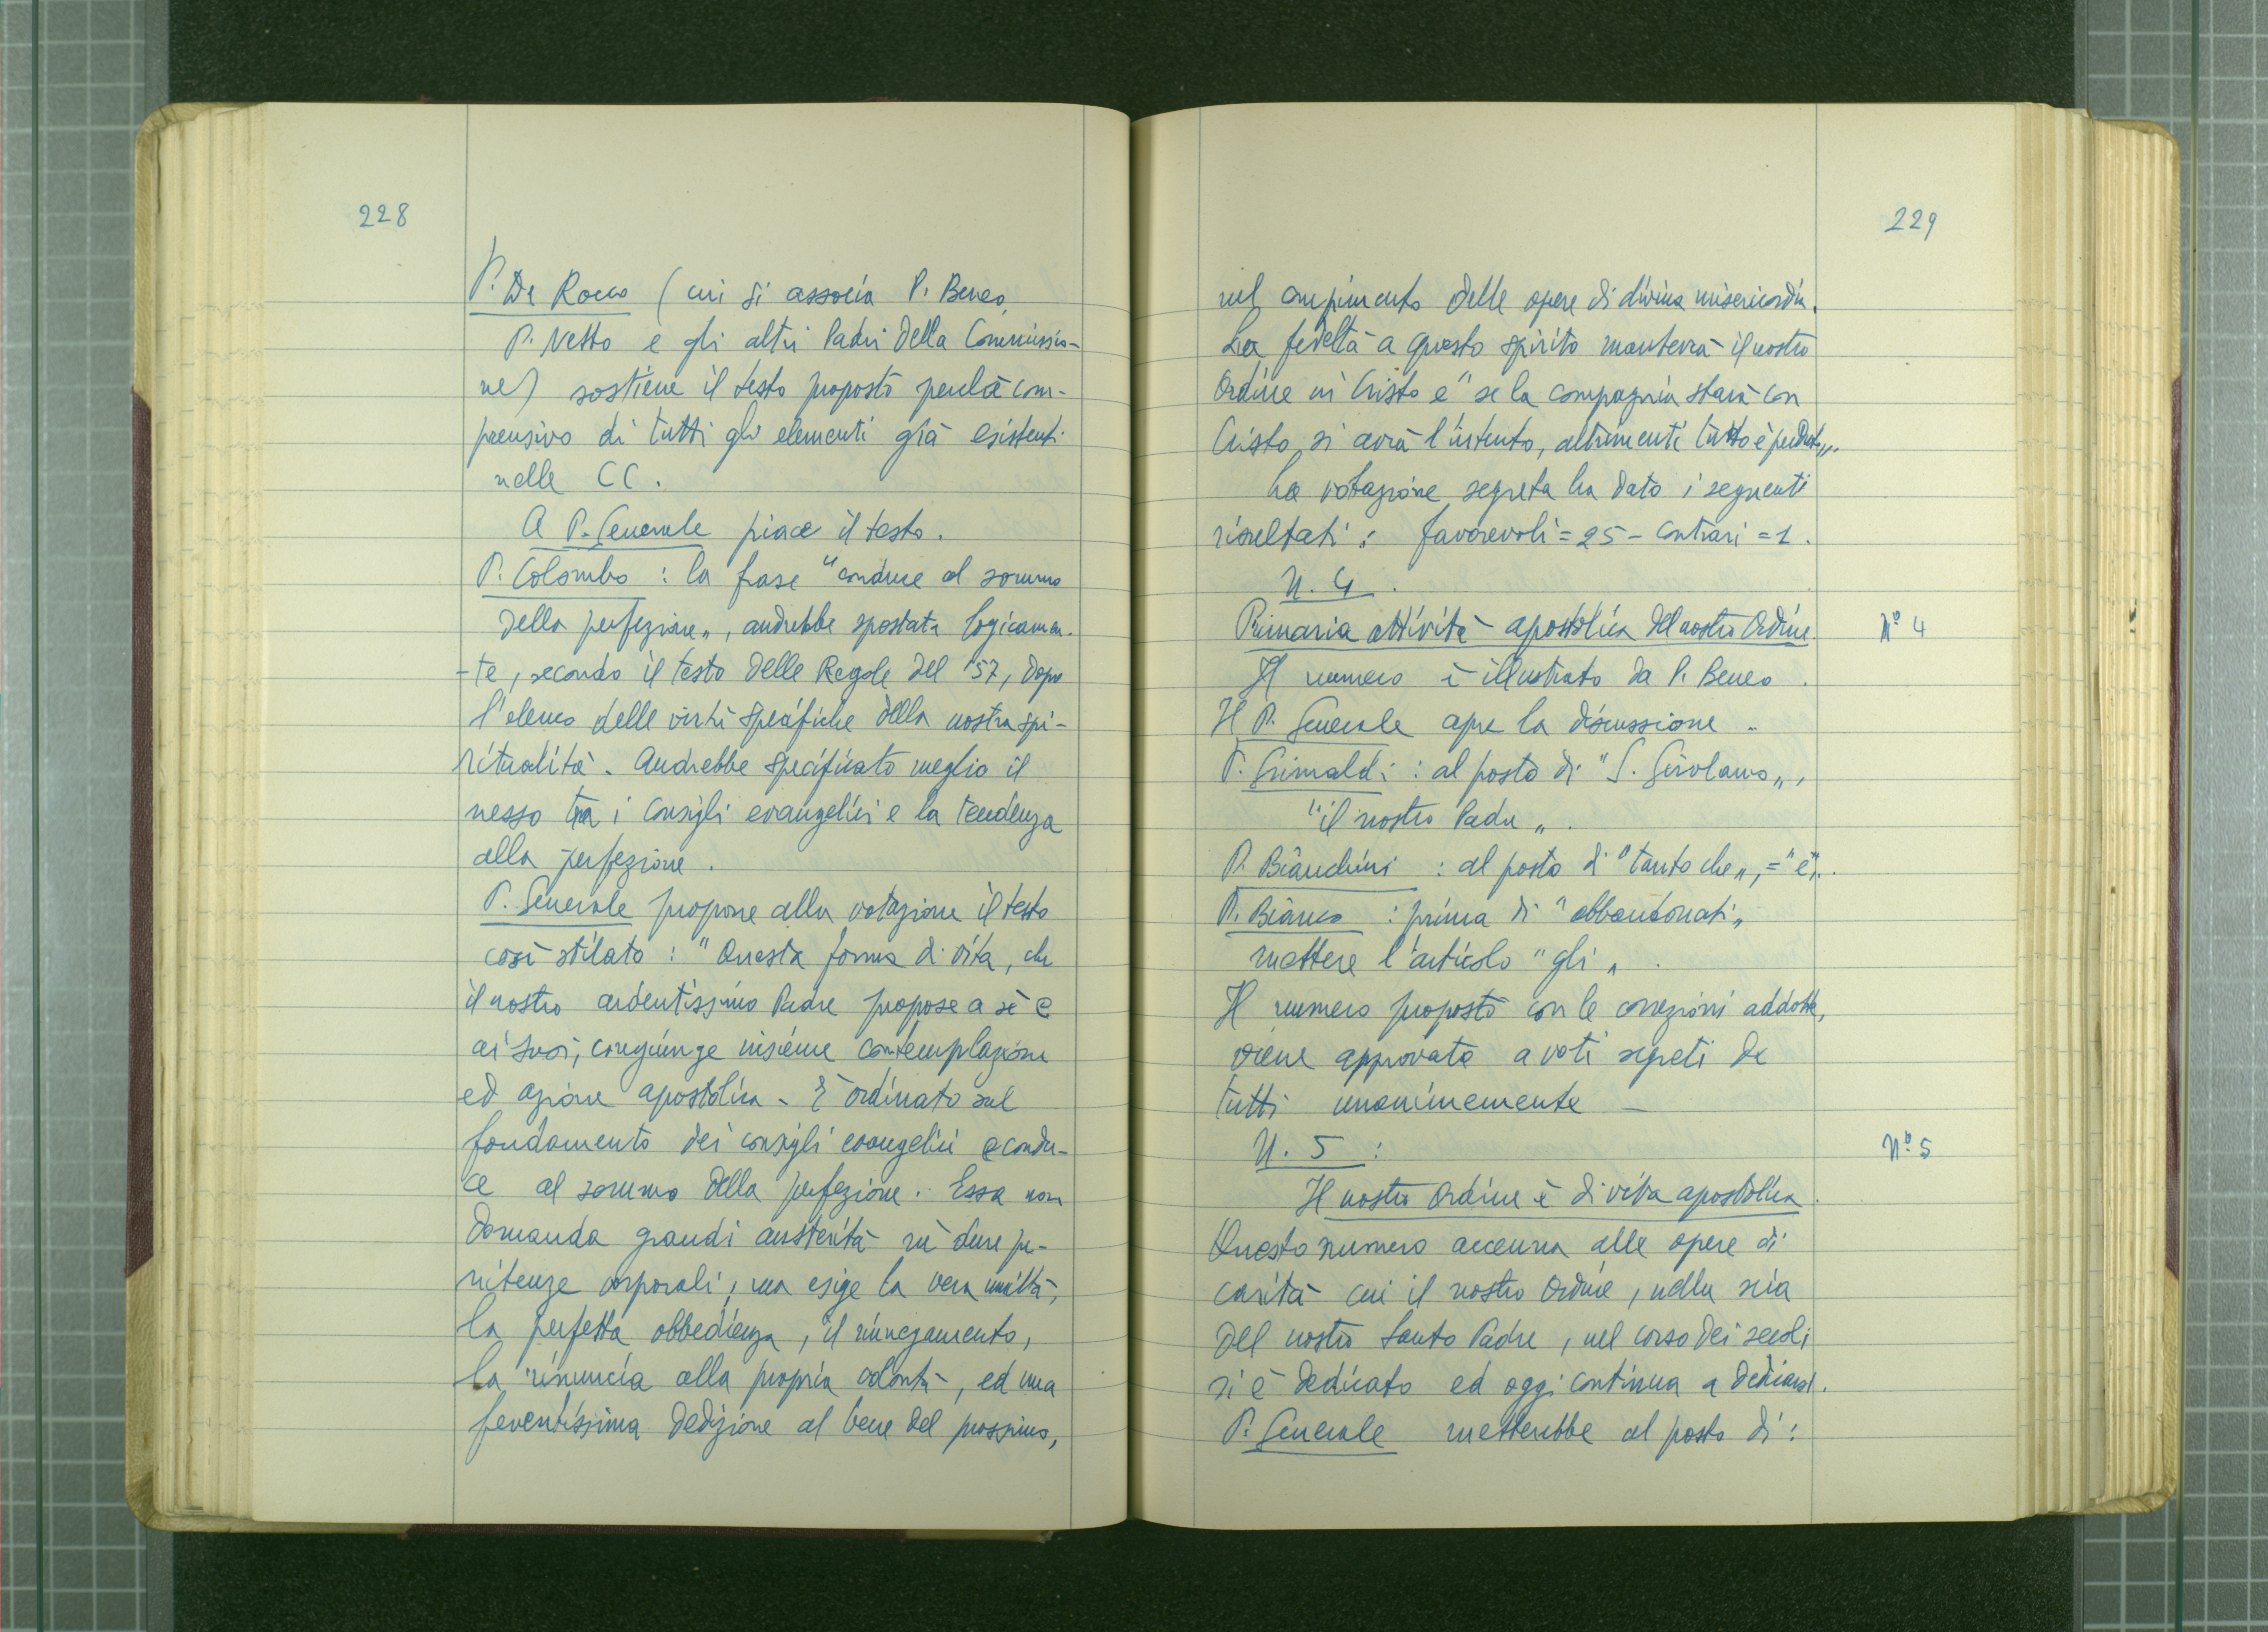 228
P. De Rocco (cui si associa P. Beneo
P. Netto e gli altri Padri della Commissio-
ne) sostiene il testo proposto perchè com-
prensivo di tutti gli elementi già esistenti
nelle CC.
A P. Generale piace il testo.
P. Colombo : la frase "conduce al sommo
della perfezione„, andrebbe spostata logicamen-
-te, secondo il testo delle Regole del '57, dopo
l'elenco delle virtù specifiche della nostra spi-
ritualità. Andrebbe specificato meglio il
nesso tra i consigli evangelici e la tendenza
alla perfezione.
P. Generale propone alla votazione il testo
così stilato : "Questa forma di vita, che
il nostro ardentissimo Padre propose a sè e
ai suoi, congiunge insieme contemplazione
ed azione apostolica. È ordinato sul
fondamento dei consigli evangelici e condu-
ce al sommo della perfezione. Essa non
domanda grandi austerità nè dure pe-
nitenze corporali, ma esige la vera umiltà,
la perfetta obbedienza, il rinnegamento,
la rinuncia alla propria volontà, ed una
ferventissima dedizione al bene del prossimo,
229
nel compimento delle opere di divina misericordia.
La fedeltà a questo spirito manterrà il nostro
Ordine in Cristo e "se la compagnia starà con
Cristo, si avrà l'intento, altrimenti tutto è perduto„.
La votazione segreta ha dato i seguenti
risultati : favorevoli = 25 - contrari = 1.
N. 4.
Primaria attività apostolica del nostro Ordine.
N.o 4
Il numero è illustrato da P. Beneo.
Il P. Generale apre la discussione.
P. Grimaldi : al posto di "S. Girolamo„,
"il nostro Padre„.
P. Bianchini : al posto di "tanto che„, = "e„.
P. Bianco : prima di "abbandonati„
mettere l'articolo "gli„.
Il numero proposto con le correzioni addotte,
viene approvato a voti segreti da
tutti unanimemente —
N. 5 :
N.o 5
Il nostro Ordine è di vita apostolica.
Questo numero accenna alle opere di
carità cui il nostro Ordine, nella scia
del nostro Santo Padre, nel corso dei secoli
si è dedicato ed oggi continua a dedicarsi.
P. Generale metterebbe al posto di :